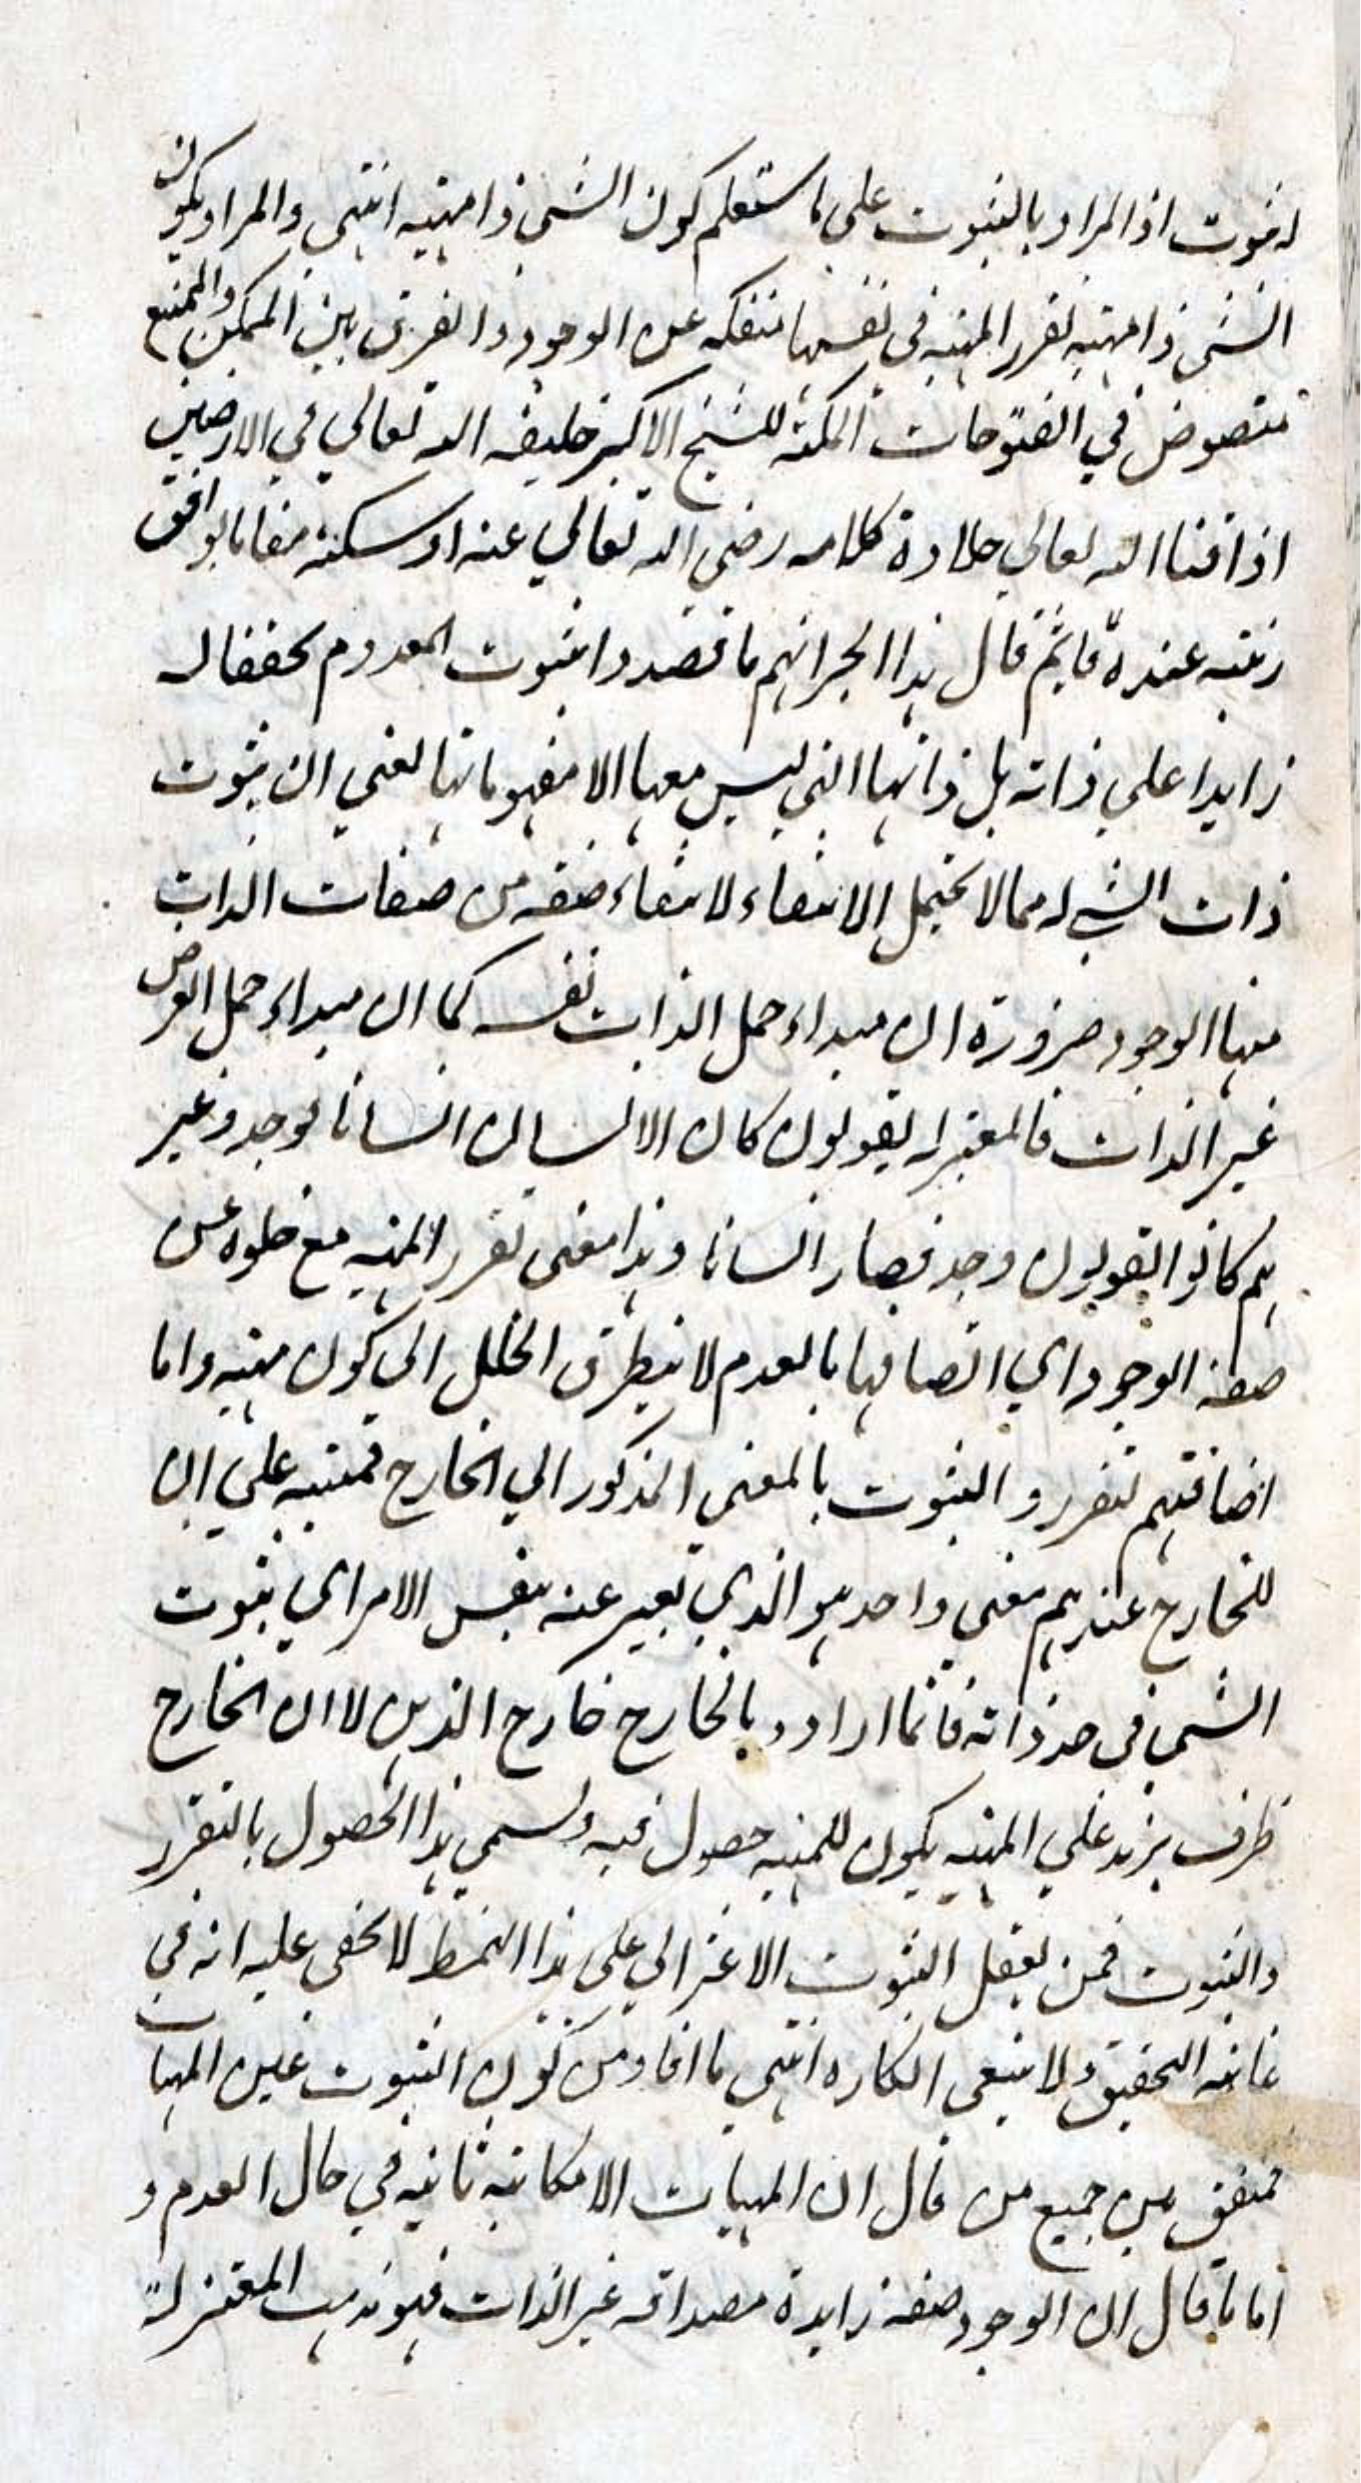 له ثبوت اذ المراد بالثبوت على ما ستعلم كون الشي ذا مهية انتهى والمراد بكون
الشي ذا مهية تقرر المهية في نفسها منفكة عن الوجود والفرق بين الممكن والممتنع
منصوص في الفتوحات المكية للشيخ الاكبر خليفة الله تعالي في الارضين
اذاقنا الله تعالي حلاوة كلامه رضي الله تعالي عنه واسكنه مقاما يوافق
رتبته عنده قايم قال هذا الحبر انهم ما قصدوا بثبوت المعدوم تحققا له
زايدا علي ذاته بل ذاتها التي ليس معها الا مفهوماتها يعني ان ثبوت
ذات الشي له مما لا يحتمل الانتفاء لانتفاء صفة من صفات الذات
منها الوجود ضرورة ان مبداء حمل الذات نفسه كما ان مبداء حمل العرض
غير الذات فالمعتزله يقولون كان الانسان انسانا فوجد وغير
هم كانوا يقولون وجد فصار انسانا وهذا معنى تقرر المهية مع خلوه عن
صفة الوجود اي اتصافها بالعدم لا يتطرق الخلل الي كون مهية واما
اضافتهم تقرر والثبوت بالمعني المذكور الي الخارج فمبتنية علي ان
للخارج عندهم معني واحد هو الذي يعبر عنه بنفس الامر اي ثبوت
الشي في حد ذاته فانما ارادو بالخارج خارج الذهن لا ان الخارج
ظرف يزيد علي المهية يكون للمهية حصول فيه ويسمي هذا الحصول بالتقرر
والثبوت فمن يعقل الثبوت الاعتزالي علي هذا النمط لا يخفى عليه انه في
غاية التحقيق ولا ينبغي انكاره انتهي ما افاد ومن كون الثبوت عين المهيات
فمتفق بين جميع من قال ان المهيات الامكانية ثابتة في حال العدم و
اما ما قال ان الوجود صفة زايدة مصداقه غير الذات فهو مذهب المعتزلة